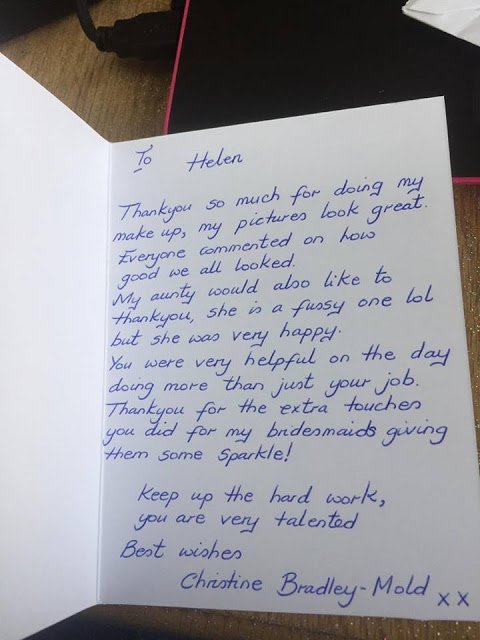 To Helen
Thankyou so much for doing my
make up, my pictures look great.
Everyone commented on how
good we all looked.
My aunty would also like to
thankyou, she is a fussy one lol
but she was very happy.
You were very helpful on the day
doing more than just your job.
Thankyou for the extra touches
you did for my bridesmaids giving
them some sparkle!
Keep up the hard work,
you are very talented
Best wishes
Christine Bradley-Mold x x